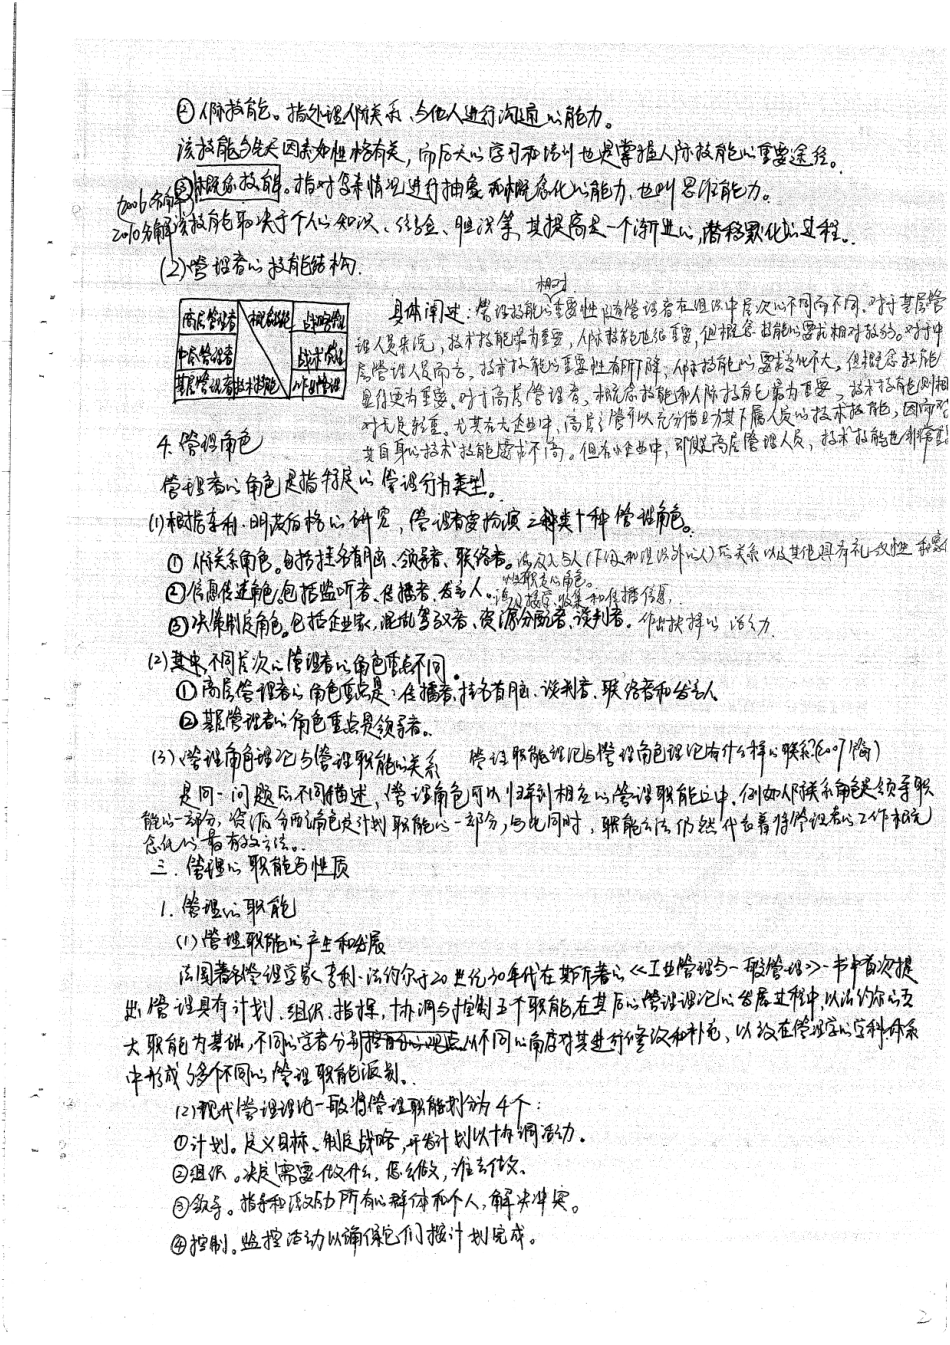 ②人际技能。指处理人际关系、与他人进行沟通的能力。
该技能与先天因素如性格有关，而后天的学习和培训也是掌握人际技能的重要途径。
2006名解
③概念技能。指对复杂情况进行抽象和概念化的能力，也叫思维能力。
2010名解
该技能取决于个人的知识、经验、胆识等，其提高是一个渐进的，潜移默化的过程。
(2)管理者的技能结构.
高层管理者 概念技能 战略管理
中层管理者 战术管理
基层管理者 技术技能 作业管理
相对
具体阐述：管理技能的重要性随管理者在组织中层次的不同而不同。对于基层管
理人员来说，技术技能最为重要，人际技能也很重要，但概念技能的要求相对较弱。对于中
层管理人员而言，技术技能的重要性有所下降，人际技能的要求变化不大，但概念技能
显得更为重要。对于高层管理者，概念技能和人际技能最为重要，技术技能则相
对无足轻重。尤其在大企业中，高层管理可以充分借助其下属人员的技术技能，因而对
其自身的技术技能要求不高。但在小企业中，即使是高层管理人员，技术技能也非常重要
4. 管理角色
管理者的角色是指特定的管理行为类型。
(1)根据亨利·明茨伯格的研究，管理者要扮演三种类十种管理角色。
① 人际关系角色。包括挂名首脑、领导者、联络者。涉及人与人(下级和组织外的人)的关系以及其他具有礼仪性和象征
性职责的角色。
②信息传递角色。包括监听者、传播者、发言人。涉及接受、收集和传播信息.
③决策制定角色。包括企业家，混乱驾驭者、资源分配者、谈判者。作出抉择的活动.
(2)其中，不同层次的管理者的角色重点不同。
①高层管理者的角色重点是：传播者、挂名首脑、谈判者、联络者和发言人
②基层管理者的角色重点是领导者。
(3)管理角色理论与管理职能的关系 管理职能理论与管理角色理论有什么样的联系(2007简)
是同一问题的不同描述，管理角色可以归并到相应的管理职能之中，例如人际关系角色是领导职
能的一部分，资源分配角色是计划职能的一部分，与此同时，职能方法仍然代表着将管理者的工作概
念化的最有效方法。
三. 管理的职能与性质
1. 管理的职能
(1)管理职能的产生和发展
法国著名管理学家亨利·法约尔于20世纪30年代在其所著的《工业管理与一般管理》一书中首次提
出，管理具有计划、组织、指挥，协调与控制五个职能，在其后的管理理论的发展过程中，以法约尔的五
大职能为基础，不同的学者分别从不同的角度对其进行修改和补充，以致在管理学的学科体系
中形成了多个不同的管理职能派别。
(2)现代管理理论一般将管理职能划分为4个：
①计划。定义目标、制定战略，开发计划以协调活动.
②组织。决定需要做什么，怎么做，谁去做.
③领导。指导和激励所有的群体和个人，解决冲突。
④控制。监控活动以确保它们按计划完成。
2